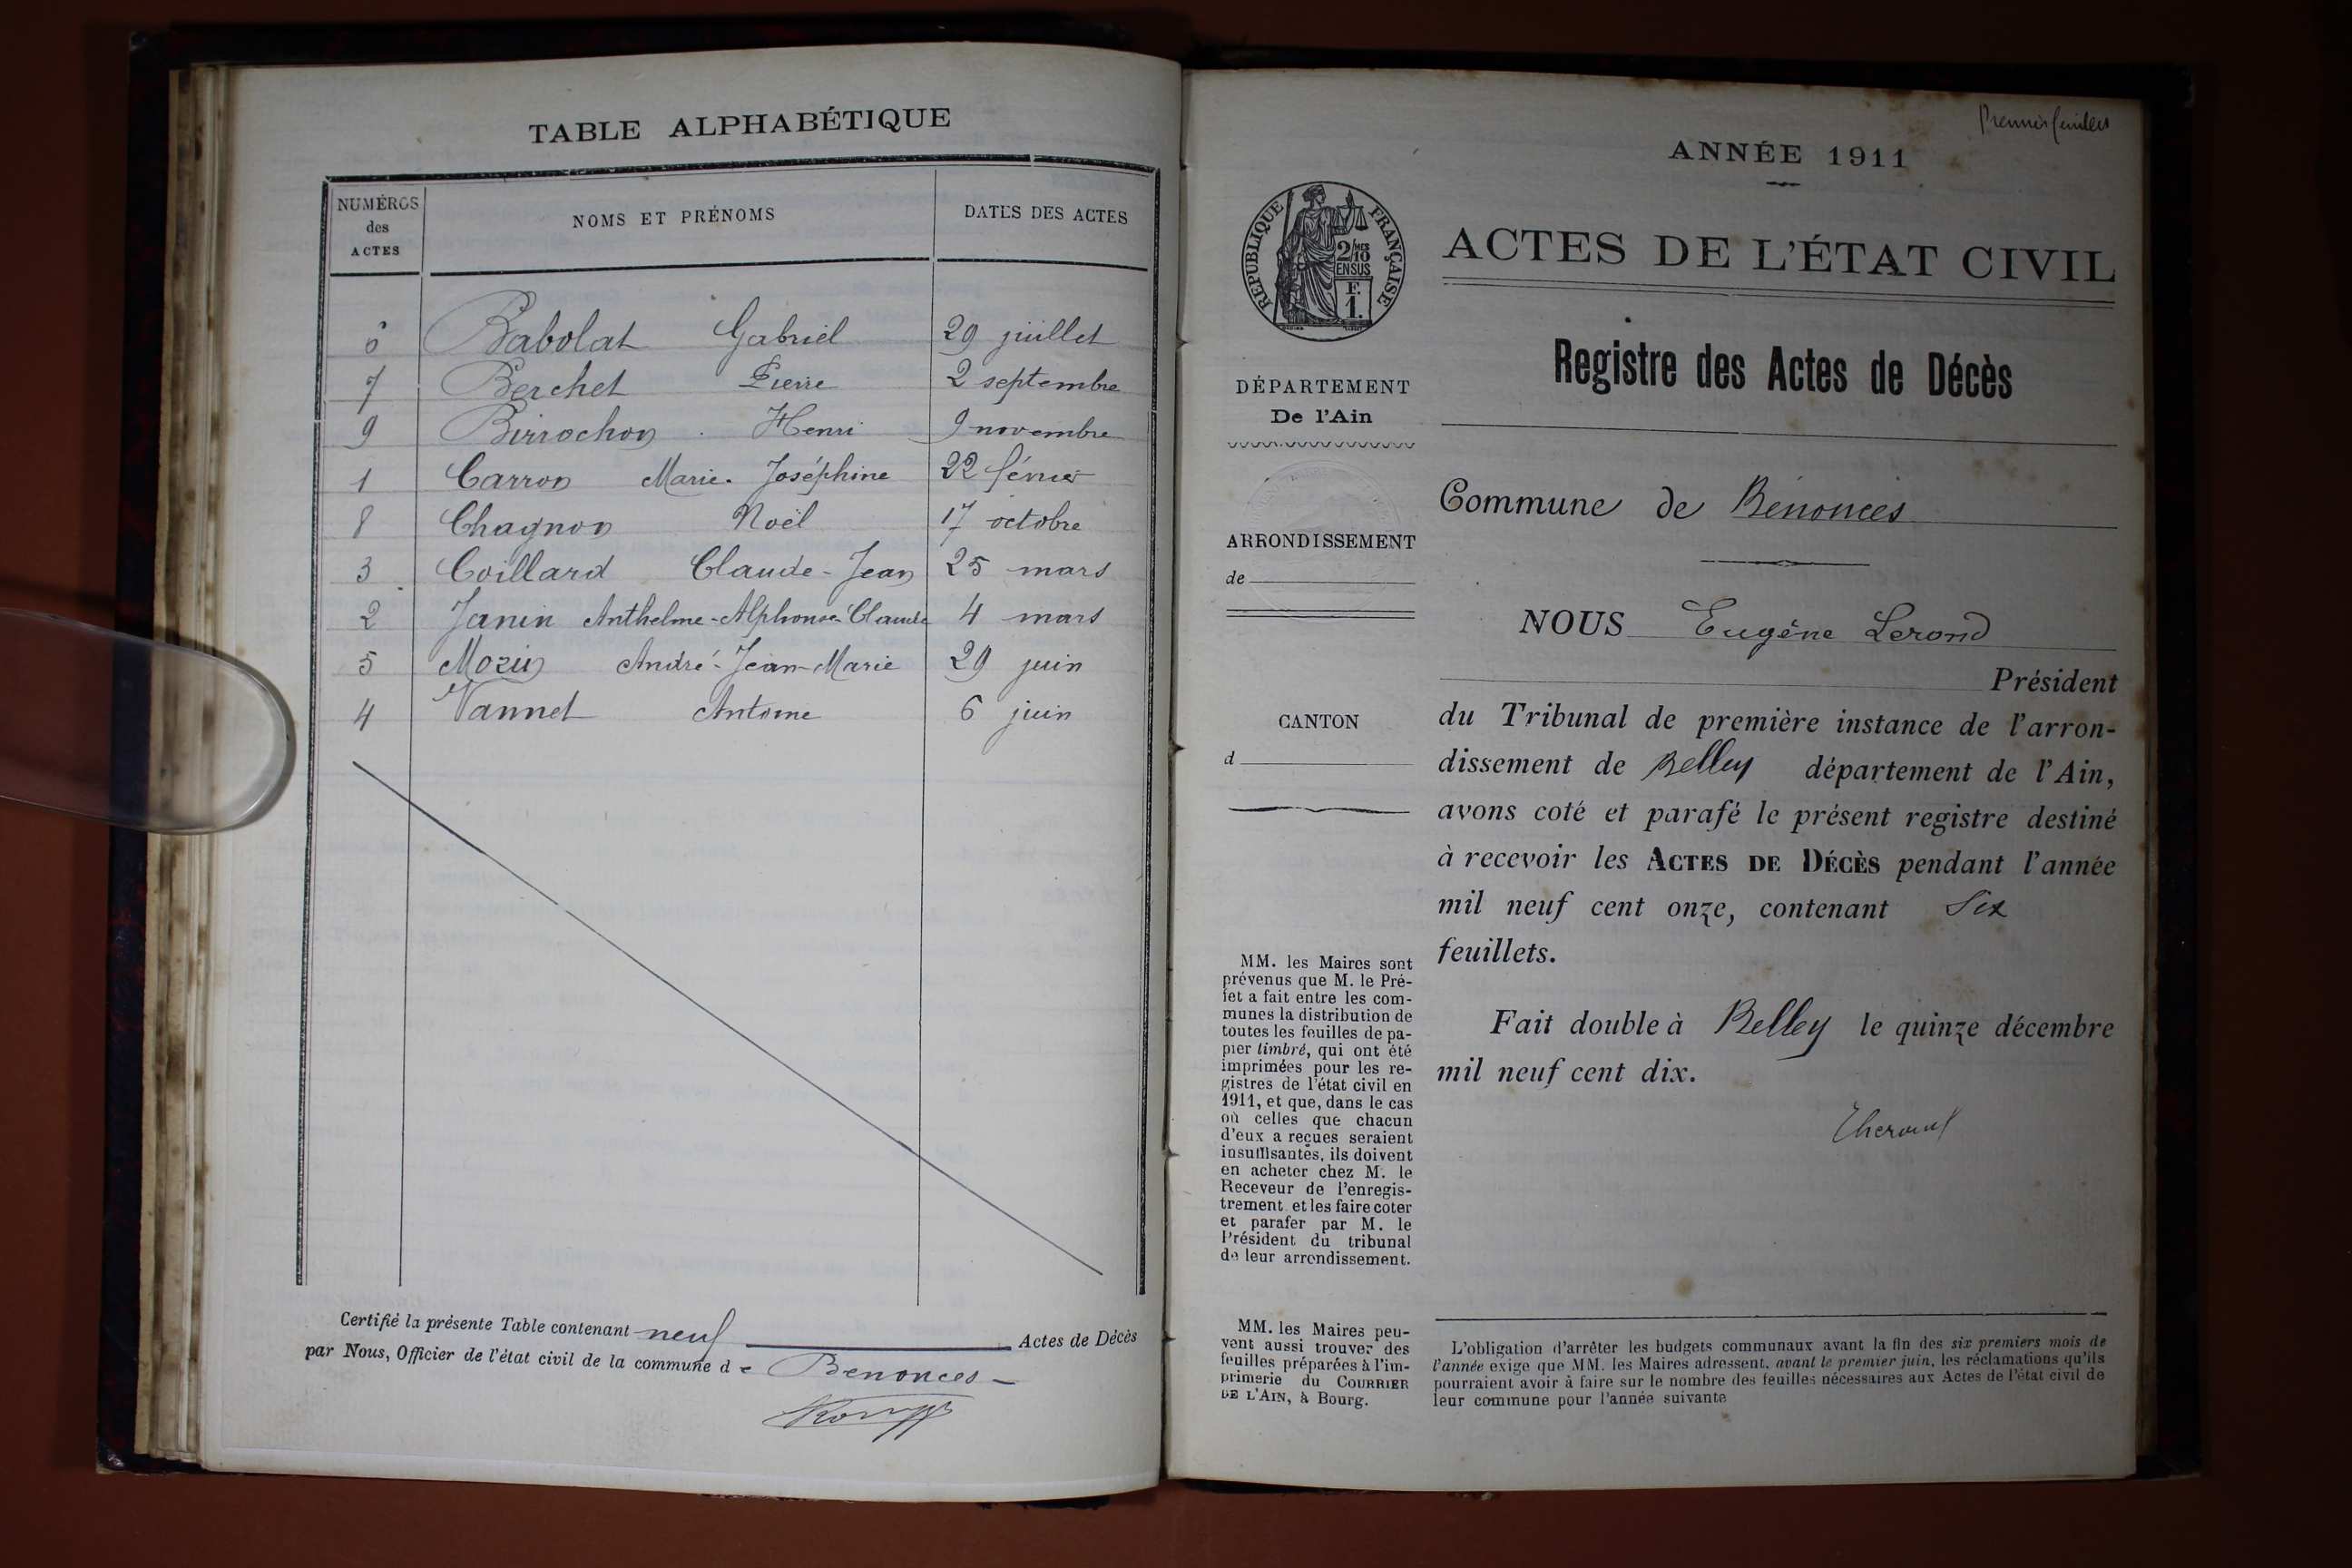 TABLE ALPHABÉTIQUE
NUMÉROS
des
ACTES
NOMS ET PRÉNOMS
DATES DES ACTES
6 Babolat Gabriel 29 juillet
7 Berchet Pierre 2 septembre
9 Birrochon Henri 9 novembre
1 Carron Marie-Joséphine 22 février
8 Chagnon Noël 17 octobre
3 Coillard Claude-Jean 25 mars
2 Janin Anthelme-Alphonse-Claude 4 mars
5 Mozin André-Jean-Marie 29 juin
4 Vannet Antoine 6 juin
Certifié la présente Table contenant neuf Actes de Décès
par Nous, Officier de l'état civil de la commune de Benonces
Premier feuillet
ANNÉE 1911
RÉPUBLIQUE FRANÇAISE
2/10 MES
EN SUS
F.
1.
ACTES DE L'ÉTAT CIVIL
Registre des Actes de Décès
DÉPARTEMENT
De l'Ain
ARRONDISSEMENT
de
CANTON
d
MM. les Maires sont
prévenus que M. le Pré-
fet a fait entre les com-
munes la distribution de
toutes les feuilles de pa-
pier timbré, qui ont été
imprimées pour les re-
gistres de l'état civil en
1911, et que, dans le cas
où celles que chacun
d'eux a reçues seraient
insuffisantes, ils doivent
en acheter chez M. le
Receveur de l'enregis-
trement et les faire coter
et parafer par M. le
Président du tribunal
de leur arrondissement.
MM. les Maires peu-
vent aussi trouver des
feuilles préparées à l'im-
primerie du COURRIER
DE L'AIN, à Bourg.
Commune de Bénonces
NOUS Eugène Lerond
Président
du Tribunal de première instance de l'arron-
dissement de Belley département de l'Ain,
avons coté et parafé le présent registre destiné
à recevoir les ACTES DE DÉCÈS pendant l'année
mil neuf cent onze, contenant Six
feuillets.
Fait double à Belley le quinze décembre
mil neuf cent dix.
L'obligation d'arrêter les budgets communaux avant la fin des six premiers mois de
l'année exige que MM. les Maires adressent, avant le premier juin, les réclamations qu'ils
pourraient avoir à faire sur le nombre des feuilles nécessaires aux Actes de l'état civil de
leur commune pour l'année suivante